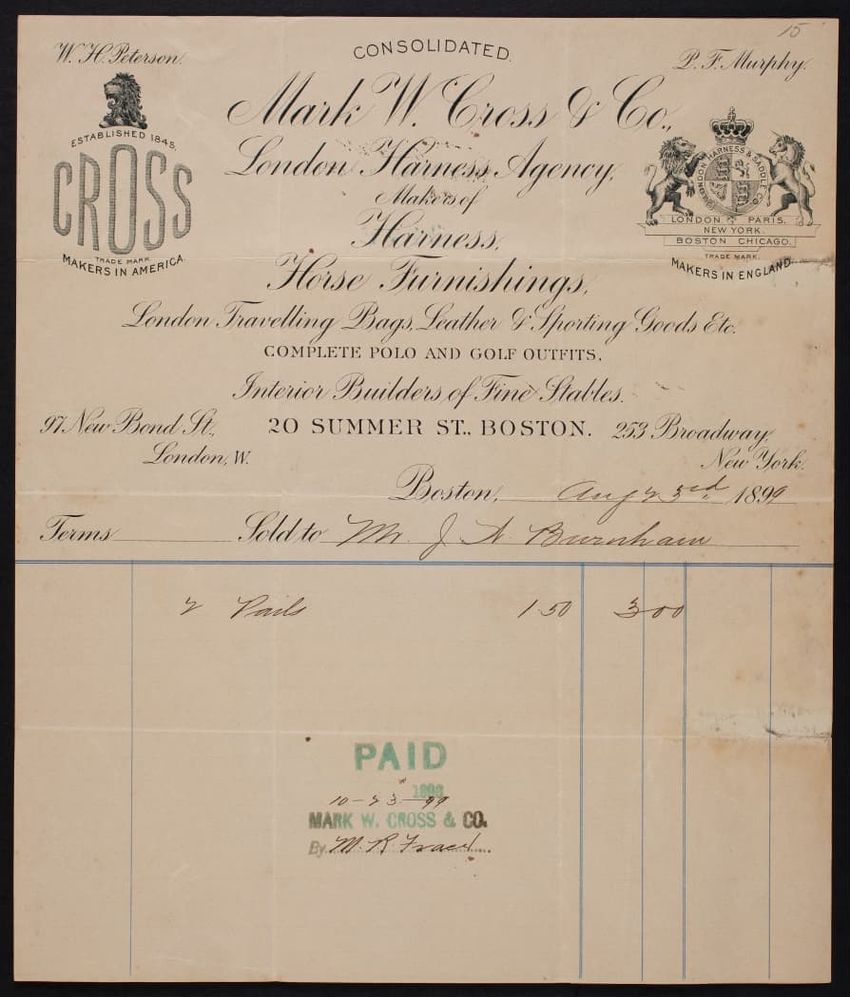 15
W. H. Peterson.
CONSOLIDATED.
P. F. Murphy.
Mark W. Cross & Co.,
ESTABLISHED 1845.
CROSS
TRADE MARK.
MAKERS IN AMERICA.
London Harness Agency,
Makers of
Harness,
Horse Furnishings,
LONDON HARNESS & SADDLE CO
LONDON PARIS.
NEW YORK.
BOSTON CHICAGO.
TRADE MARK.
MAKERS IN ENGLAND.
London Travelling Bags, Leather & Sporting Goods Etc.
COMPLETE POLO AND GOLF OUTFITS.
Interior Builders of Fine Stables.
97 New Bond St., London, W.
20 SUMMER ST., BOSTON.
253 Broadway, New York.
Boston, Aug 23rd, 1899
Terms Sold to Mr. J A Burnham
2 Pails 1.50 3 00
PAID
10-23-99
MARK W. CROSS & CO.
By M. R.